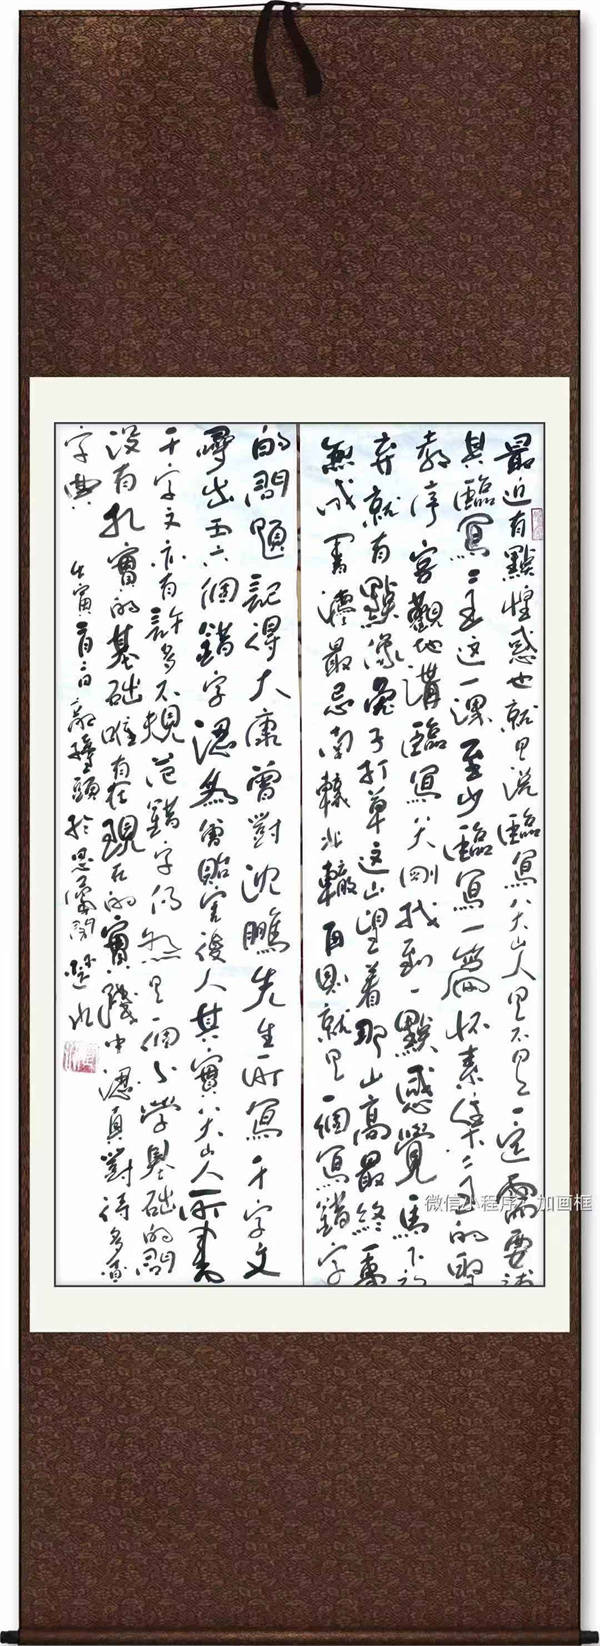 最近有點惶惑也就是説臨寫八大山人是不是一定需要讀
其臨寫二王這一課至少臨寫一篇懷素集二王的聖
教序客觀地講臨寫八大剛找到一點感覺馬下放
弃就有點像兔子打草這山望着那山高最終一事
無成書灋最忌南轅北轍再則就是一個寫錯字
的問題記得大康曾對沈鵬先生所寫千字文
尋出五六個錯字認爲會貽害後人其實八大山人所書
千字文亦有許多不規范錯字仍然是一個少學基础的問
没有扎實的基础唯有在現在的實踐中認真對待多查
字典 壬寅二月二日敲擡頭於思屬閣 楚水
微信小程序：加画框